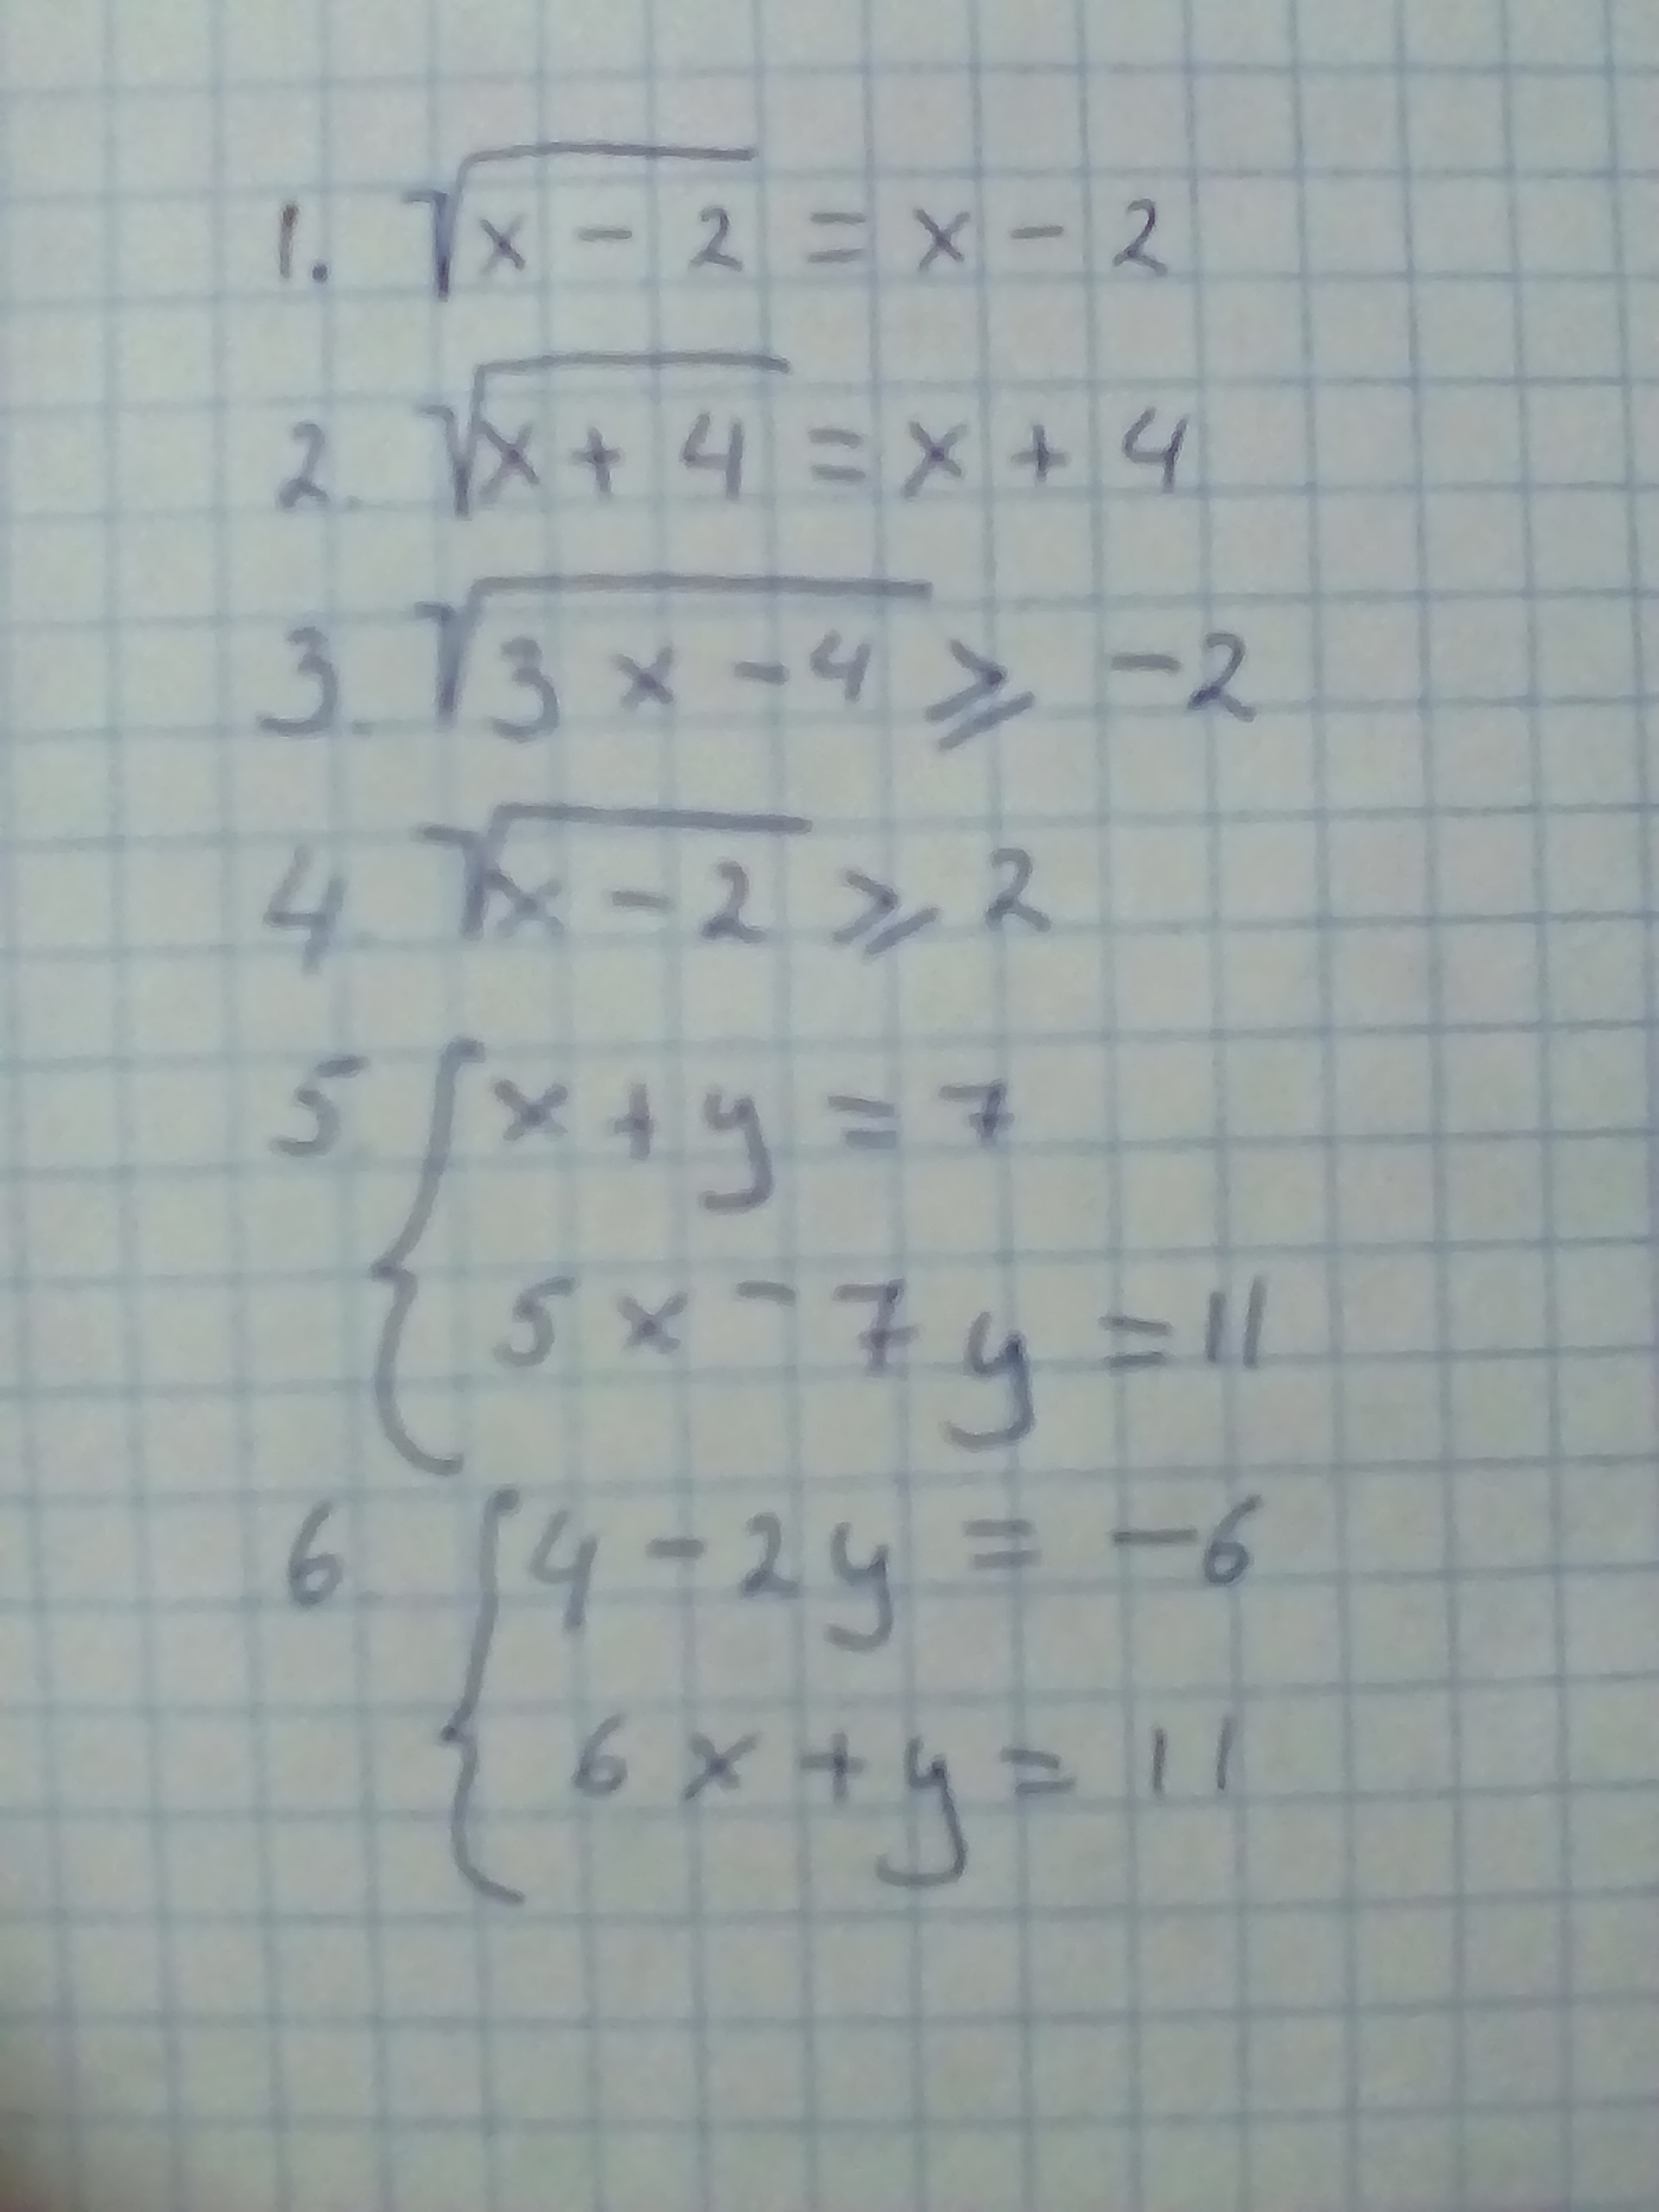 1. √(x - 2) = x - 2
2. √(x + 4) = x + 4
3. √(3x - 4) ⩾ -2
4 √(x - 2) ⩾ 2
5 { x + y = 7
5x - 7y = 11
6 { 4 - 2y = -6
6x + y = 11